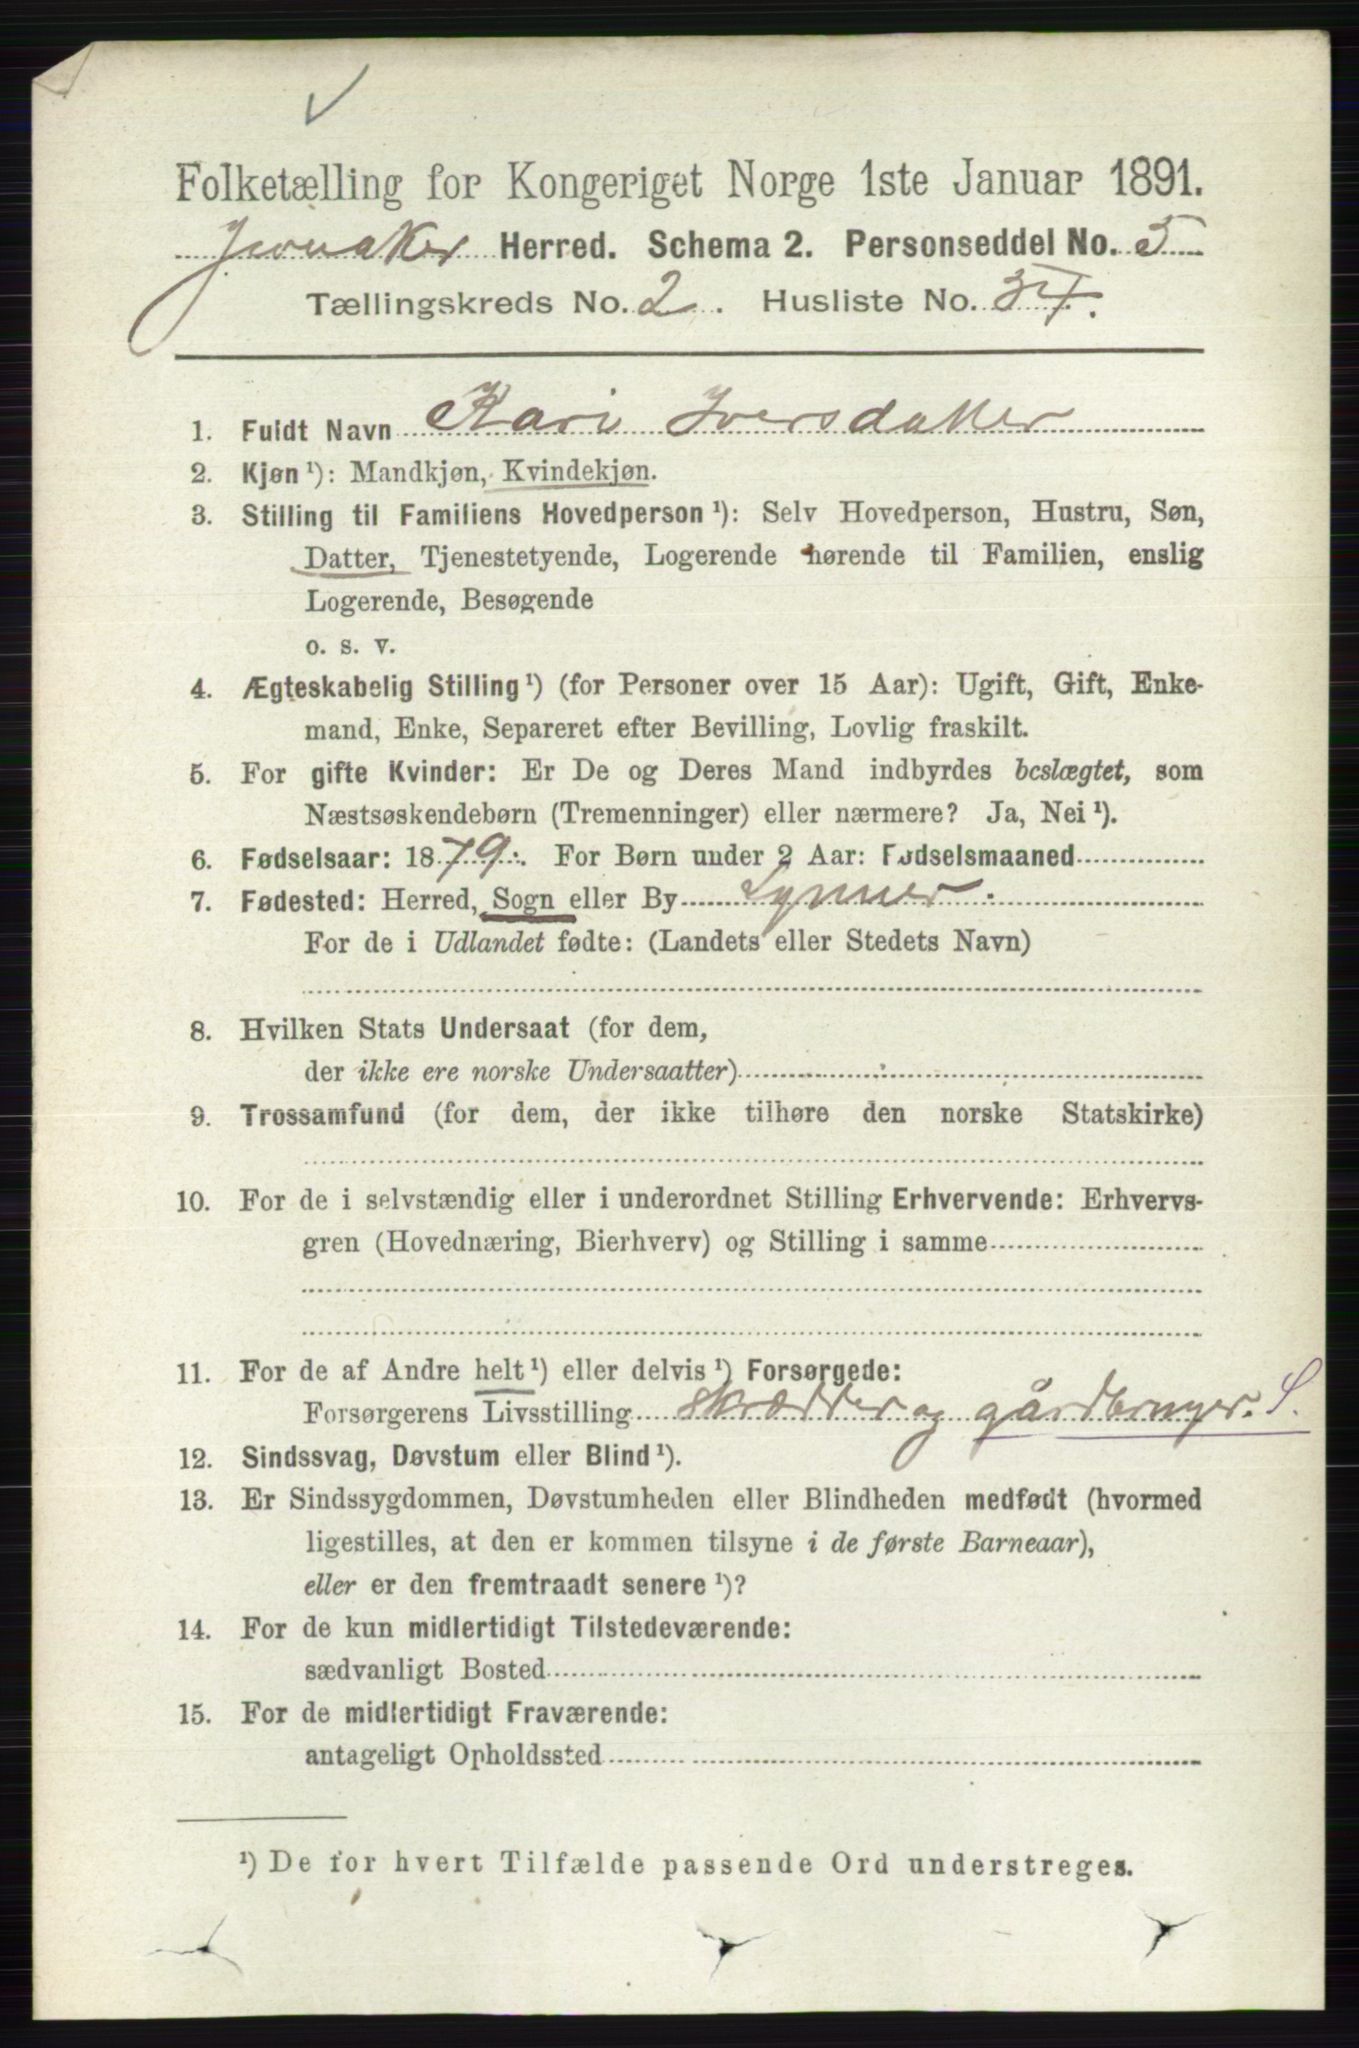 Folketælling for Kongeriget Norge 1ste Januar 1891.
Jevnaker Herred. Schema 2. Personseddel No. 5
Tællingskreds No. 2. Husliste No. 37.
1. Fuldt Navn Kari Iversdatter
2. Kjøn ¹): Mandkjøn, Kvindekjøn.
3. Stilling til Familiens Hovedperson ¹): Selv Hovedperson, Hustru, Søn,
Datter, Tjenestetyende, Logerende hørende til Familien, enslig
Logerende, Besøgende
o. s. v.
4. Ægteskabelig Stilling ¹) (for Personer over 15 Aar): Ugift, Gift, Enke-
mand, Enke, Separeret efter Bevilling, Lovlig fraskilt.
5. For gifte Kvinder: Er De og Deres Mand indbyrdes beslægtet, som
Næstsøskendebørn (Tremenninger) eller nærmere? Ja, Nei ¹).
6. Fødselsaar: 1879. For Børn under 2 Aar: Fødselsmaaned
7. Fødested: Herred, Sogn eller By Lynner.
For de i Udlandet fødte: (Landets eller Stedets Navn)
8. Hvilken Stats Undersaat (for dem,
der ikke ere norske Undersaatter)
9. Trossamfund (for dem, der ikke tilhøre den norske Statskirke)
10. For de i selvstændig eller i underordnet Stilling Erhvervende: Erhvervs-
gren (Hovednæring, Bierhverv) og Stilling i samme
11. For de af Andre helt ¹) eller delvis ¹) Forsørgede:
Forsørgerens Livsstilling skrædder og gårdbruger. S.
12. Sindssvag, Døvstum eller Blind ¹).
13. Er Sindssygdommen, Døvstumheden eller Blindheden medfødt (hvormed
ligestilles, at den er kommen tilsyne i de første Barneaar),
eller er den fremtraadt senere ¹)?
14. For de kun midlertidigt Tilstedeværende:
sædvanligt Bosted
15. For de midlertidigt Fraværende:
antageligt Opholdssted
¹) De for hvert Tilfælde passende Ord understreges.